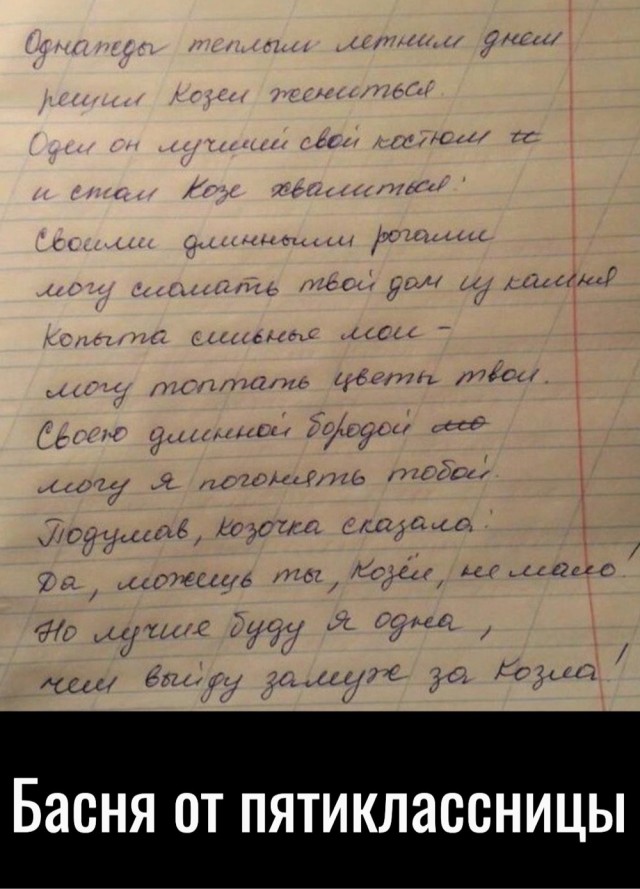 Однапжды теплым летним днем
решил Козел жениться.
Одел он лучший свой костюм и
и стал Козе хвалиться:
Своими длинными рогами
могу сломать твой дом из камня
Копыта сильные мои -
могу топтать цветы твои.
Своею длинной бородой мо
могу я погонять тобой.
Подумав, Козочка сказала:
Да, можешь ты, Козёл, не мало!
Но лучше буду я одна,
чем выйду замуж за Козла!
Басня от пятиклассницы